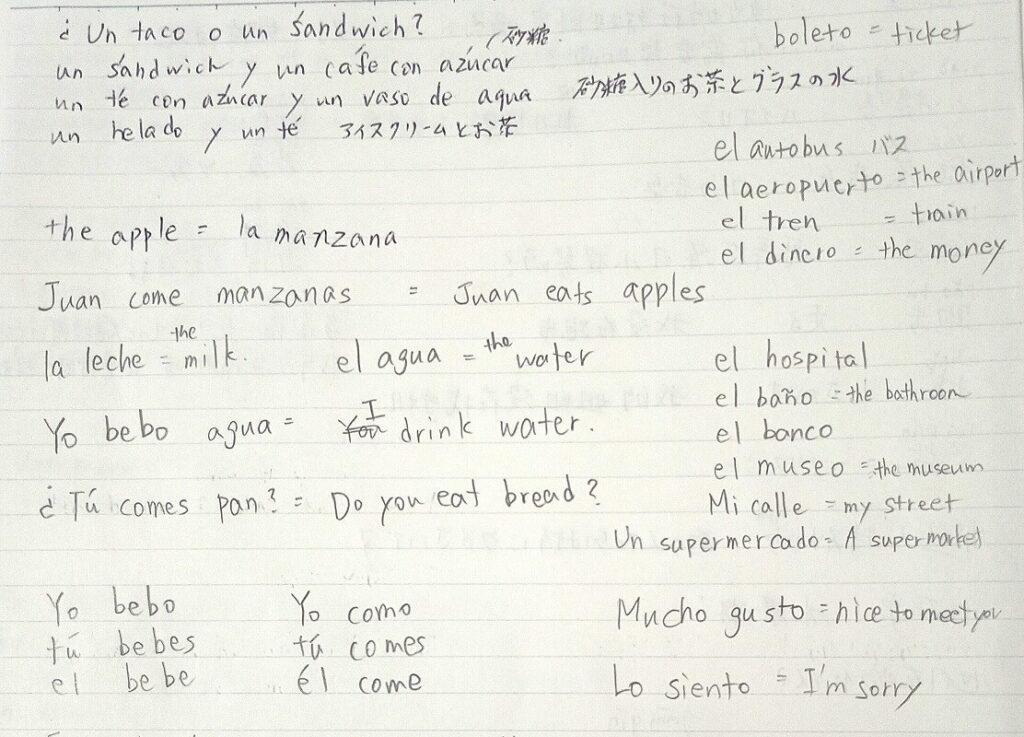 ¿ Un taco o un sándwich?
un sándwich y un cafe con azúcar
砂糖
un té con azúcar y un vaso de agua 砂糖入りのお茶とグラスの水
un helado y un té アイスクリームとお茶
the apple = la manzana
Juan come manzanas = Juan eats apples
la leche = the milk. el agua = the water
Yo bebo agua = I drink water.
¿ Tú comes pan? = Do you eat bread?
Yo bebo Yo como
tú bebes tú comes
el bebe él come
boleto = ticket
el autobus バス
el aeropuerto = the airport
el tren = train
el dinero = the money
el hospital
el baño = the bathroom
el banco
el museo = the museum
Mi calle = my street
Un supermercado = A supermarket
Mucho gusto = nice to meet you
Lo siento = I'm sorry